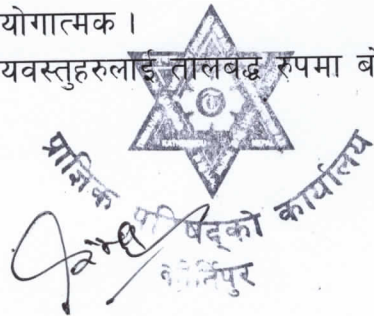 योगात्मक ।
यवस्तुहरुलाई तालबद्ध रुपमा बो
प्राज्ञिक परिषद्को कार्यालय
कीर्तिपुर